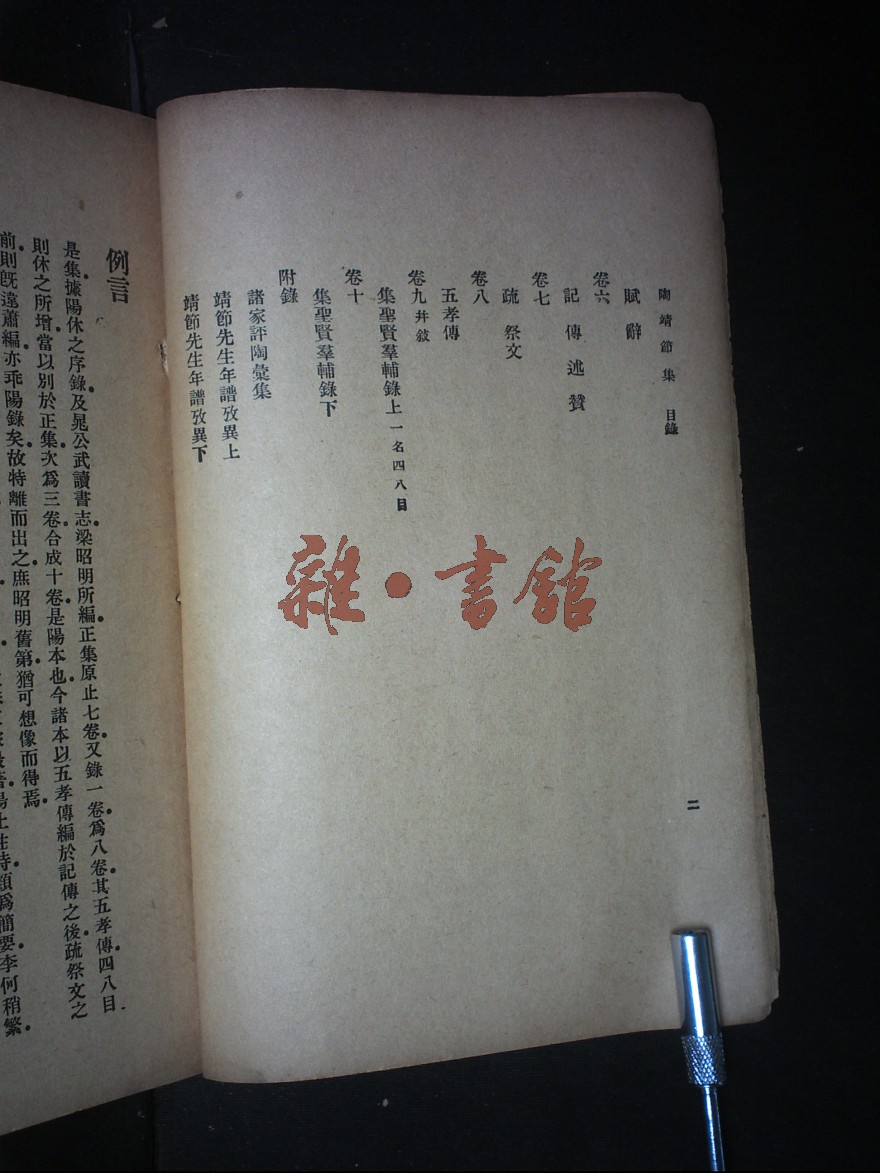 陶靖節集 目錄
賦辭
卷六
記傳述贊
卷七
疏祭文
卷八
五孝傳
卷九并敍
集聖賢羣輔錄上一名四八目
卷十
集聖賢羣輔錄下
附錄
諸家評陶彙集
靖節先生年譜攷異上
靖節先生年譜攷異下
二
雜·書館
例言
是集據陽休之序錄及晁公武讀書志梁昭明所編正集原止七卷又錄一卷爲八卷其五孝傳四八目
則休之所增當以別於正集次爲三卷合成十卷是陽本也今諸本以五孝傳編於記傳之後疏祭文之
前則旣遠蕭編亦乖陽錄矣故特離而出之庶昭明舊第猶可想像而得焉
簡要李何稍繁